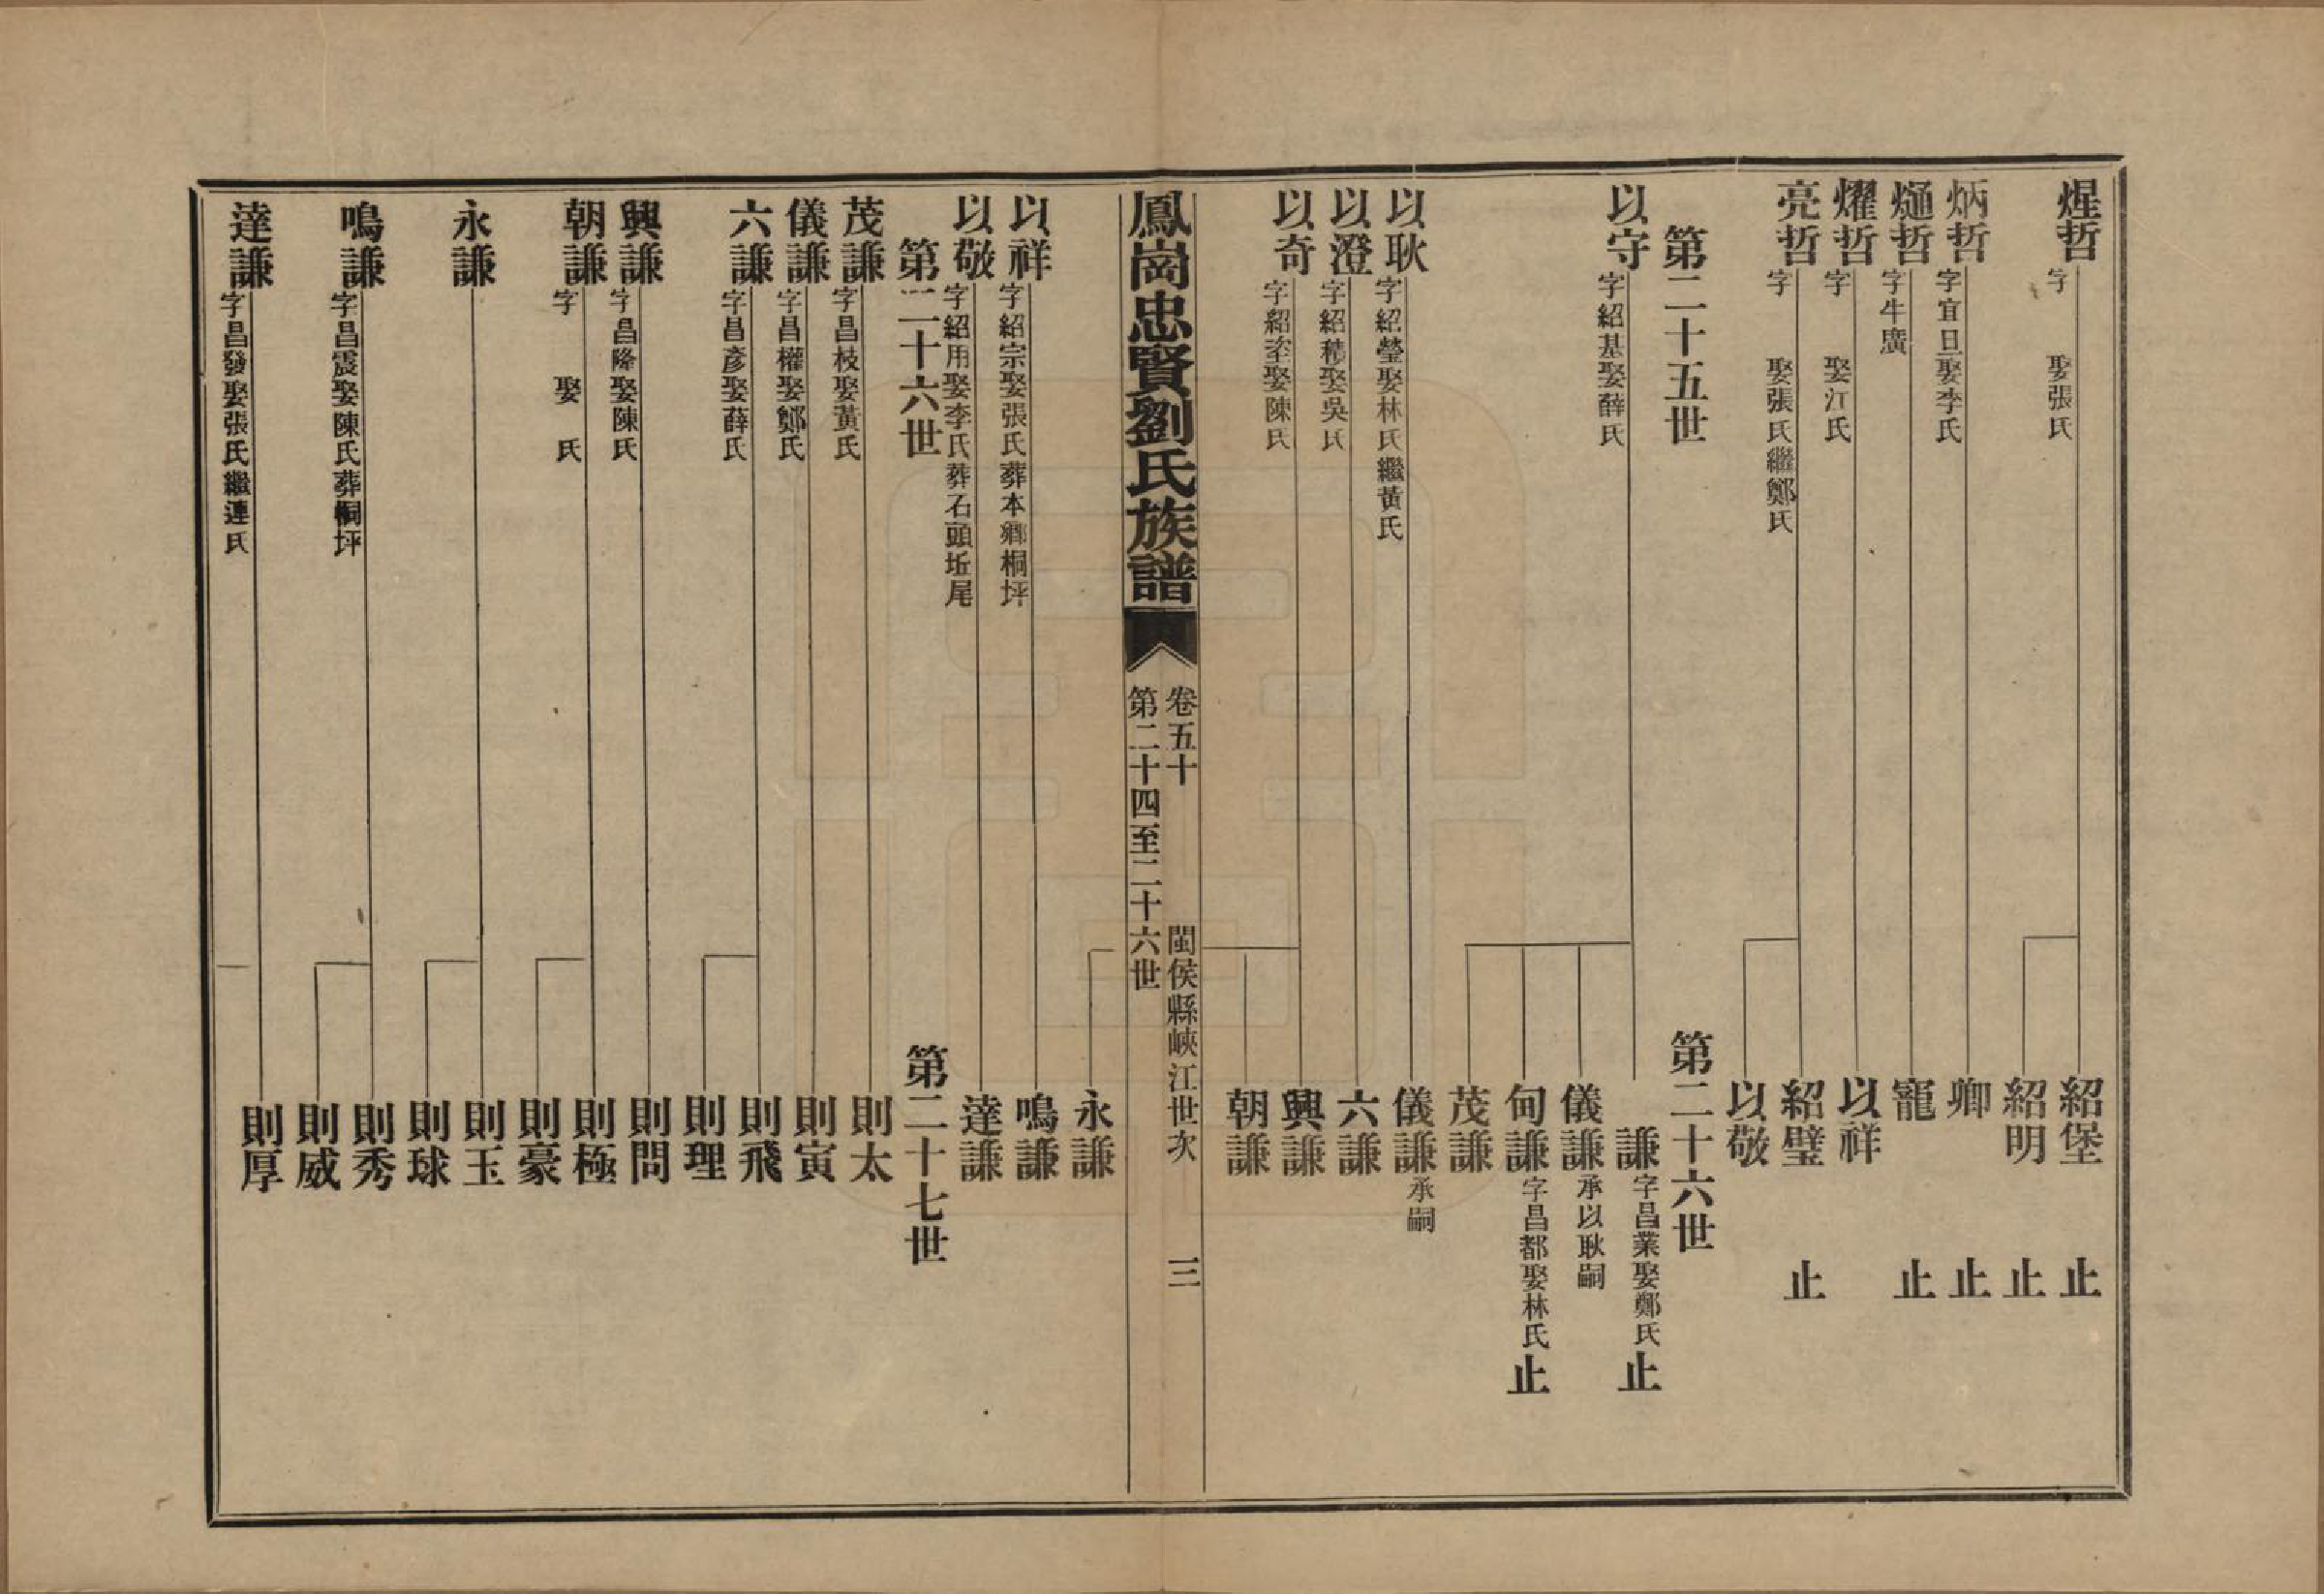 煋哲 字 娶張氏
紹堡 止
紹明 止
炳哲 字宜旦娶李氏
卿 止
熥哲 字牛廣
寵 止
燿哲 字 娶江氏
以祥
亮哲 字 娶張氏繼鄭氏
紹璧 止
以敬
第二十五世
第二十六世
以守 字紹基娶薛氏
謙 字昌業娶鄭氏 止
儀謙 承以耿嗣
甸謙 字昌都娶林氏 止
茂謙
以耿 字紹瑩娶林氏繼黃氏
儀謙 承嗣
以澄 字紹積娶吳氏
六謙
以奇 字紹娶陳氏
興謙
朝謙
鳳崗忠賢劉氏族譜
卷五十 閩侯縣峽江世次 三
第二十四至二十六世
永謙
以祥 字紹宗娶張氏葬本鄉桐坪
鳴謙
以敬 字紹用娶李氏葬石頭坵尾
達謙
第二十六世
第二十七世
茂謙 字昌枝娶黃氏
則太
儀謙 字昌權娶鄭氏
則寅
六謙 字昌彥娶薛氏
則飛
則理
興謙 字昌隆娶陳氏
則問
朝謙 字 娶 氏
則極
則豪
永謙
則玉
則球
鳴謙 字昌震娶陳氏葬桐坪
則秀
則威
達謙 字昌發娶張氏繼連氏
則厚